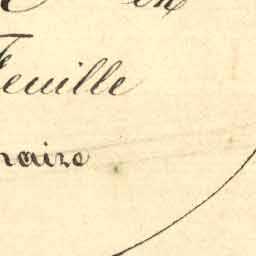 en
Feuille
naire